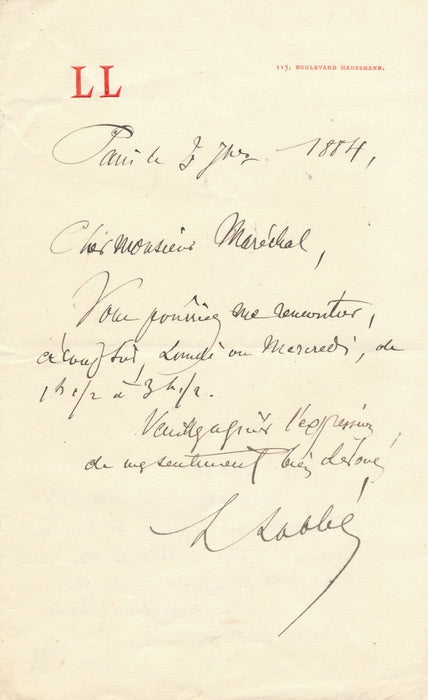 LL
115, BOULEVARD HAUSSMANN.
Paris le 3 1884,
Cher Monsieur Maréchal,
Vous pourriez me rencontrer,
à coup sûr, Lundi ou Mercredi, de
1h 1/2 à 3h 1/2.
Veuillez agréer l'expression
de mes sentiments bien dévoués
L